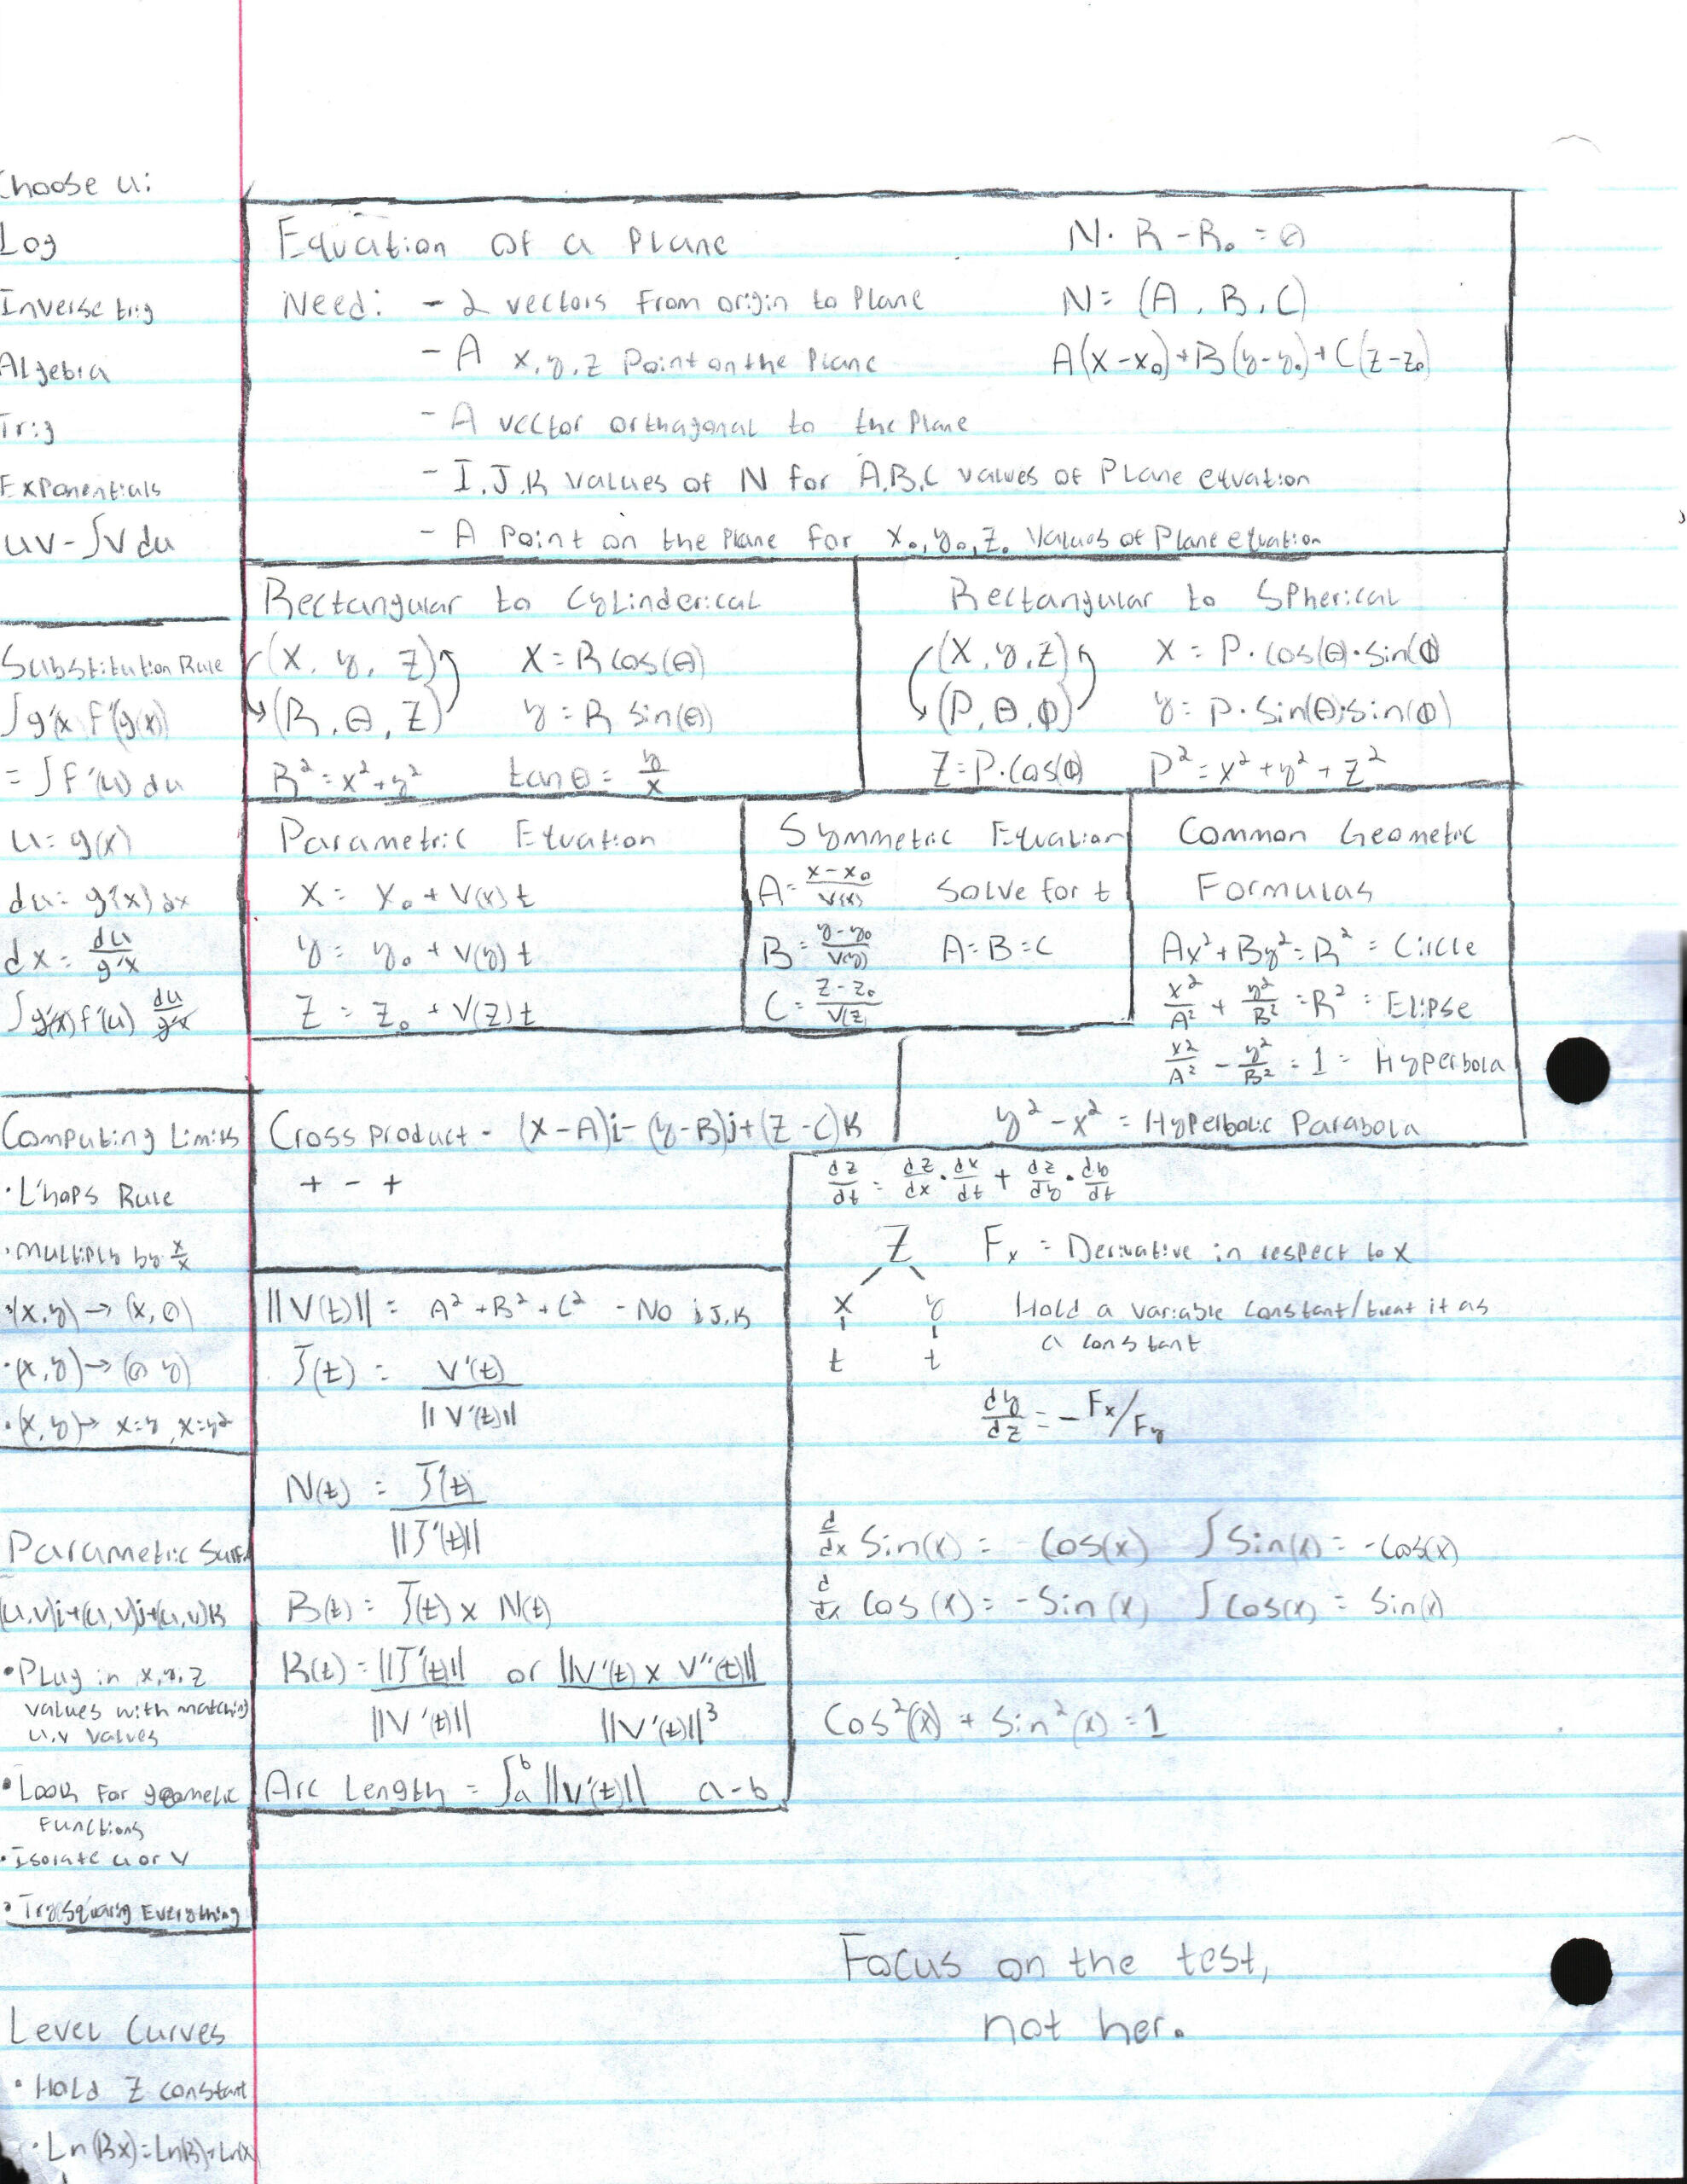 Choose u:
Log
Inverse trig
Algebra
Trig
Exponentials
uv - ∫v du
Substitution Rule
∫g'(x) f'(g(x))
= ∫f'(u) du
u = g(x)
du = g'(x) dx
dx = du/g'x
∫g'(x) f'(u) du/g'x
Computing Limits
· L'hops Rule
· Multiply by x/x
· (x, y) → (x, 0)
· (x, y) → (0, y)
· (x, y) → x=y, x=y²
Parametric Surf.
(u,v)i+(u,v)j+(u,v)k
• Plug in x, y, z
values with matching
u,v values
• Look for geometic
Functions
• Isolate u or v
• Try Squaring Everything
Level Curves
• Hold Z constant
· Ln(Bx)=Ln(B)+Ln(x)
Equation of a Plane N· R - R₀ = 0
Need: - 2 vectors from origin to Plane N = (A, B, C)
- A x, y, z Point on the Plane A(x-x₀)+B(y-y₀)+C(z-z₀)
- A vector orthagonal to the Plane
- I, J, K values of N for A,B,C values of Plane equation
- A Point on the Plane for x₀, y₀, z₀ Values of Plane equation
Rectangular to Cylinderical
(x, y, z) x = R cos(θ)
(R, θ, Z) y = R sin(θ)
R² = x² + y² tan θ = y/x
Rectangular to Spherical
(x, y, z) x = P·cos(θ)·sin(ϕ
(P, θ, ϕ) y = P·Sin(θ)·sin(ϕ)
Z = P·cos(ϕ) P² = x² + y² + z²
Parametric Equation
x = x₀ + V(x) t
y = y₀ + V(y) t
Z = Z₀ + V(Z) t
Symmetric Equation
A = x-x₀/V(x) Solve for t
B = y-y₀/V(y) A=B=C
C = Z-Z₀/V(Z)
Common Geometic
Formulas
Ax²+By²=R² = Circle
x²/A² + y²/B² = R² = Elipse
x²/A² - y²/B² = 1 = Hyperbola
y² - x² = Hyperbolic Parabola
Cross Product - (x-A)i-(y-B)j+(z-C)k
+ - +
||V(t)|| = A² + B² + C² - No i,J,k
T(t) = V'(t) / ||V'(t)||
N(t) = T'(t) / ||T'(t)||
B(t) = T(t) x N(t)
K(t) = ||T'(t)|| / ||V'(t)|| or ||V'(t) x V''(t)|| / ||V'(t)||³
Arc Length = ∫ₐᵇ ||V'(t)|| a-b
dz/dt = dz/dx · dx/dt + dz/dy · dy/dt
Z Fx = Derivative in respect to x
x y Hold a variable constant/treat it as
a constant
t t
dy/dz = -Fx/Fy
d/dx Sin(x) = Cos(x) ∫Sin(x) = -Cos(x)
d/dx Cos(x) = -Sin(x) ∫Cos(x) = Sin(x)
Cos²(x) + Sin²(x) = 1
Focus on the test,
not her.